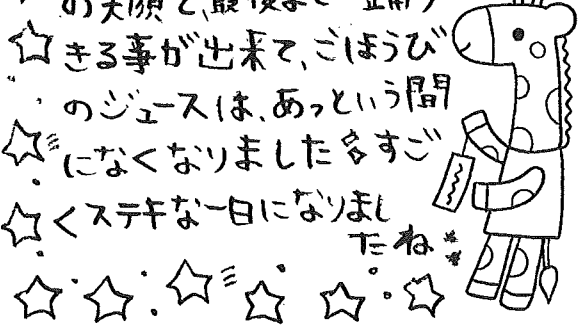 の笑顔で、最後まで
きる事が出来て、ごほうび
のジュースは、あっという間
になくなりました すご
くステキな一日になりまし
たね